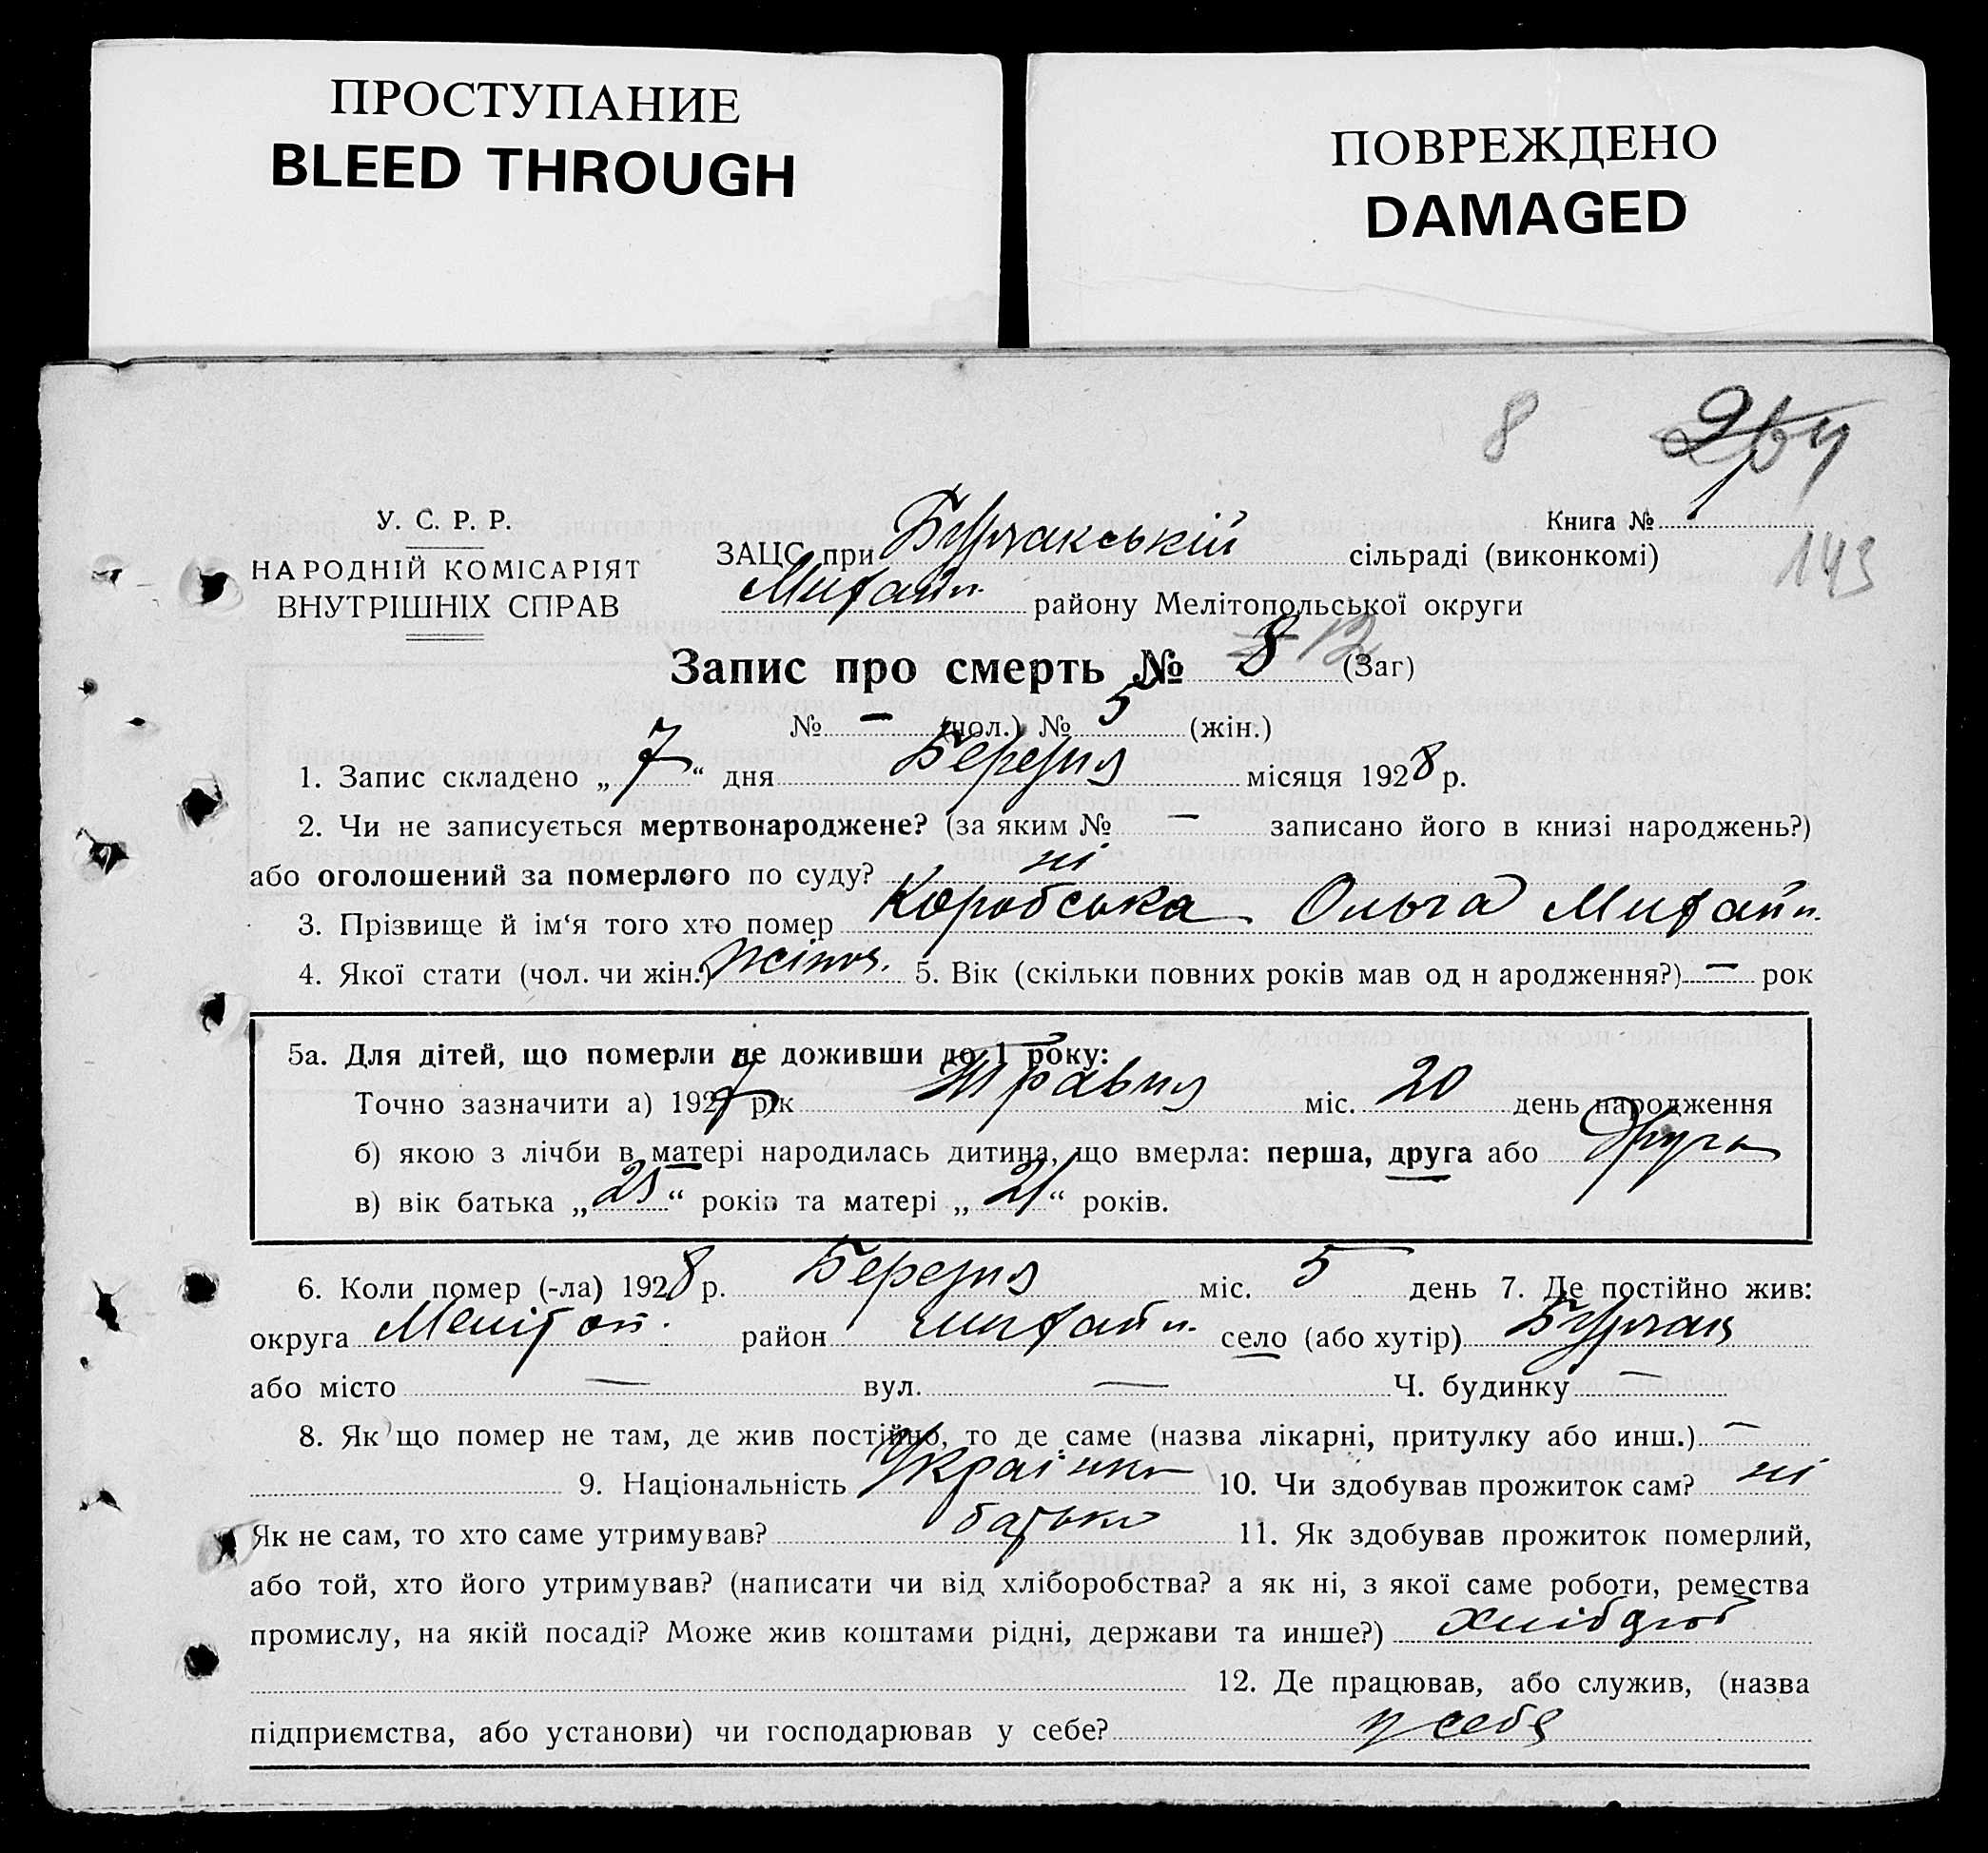 ПРОСТУПАНИЕ
BLEED THROUGH
ПОВРЕЖДЕНО
DAMAGED
8
У. С. Р. Р.
НАРОДНІЙ КОМІСАРІЯТ
ВНУТРІШНІХ СПРАВ
Книга №
143
ЗАЦС при Бурчакській сільраді (виконкомі)
Михайл. району Мелітопольської округи
Запис про смерть № 8 12 (Заг)
№ — (чол.) № 5 (жін.)
1. Запис складено „ 7 “ дня Березня місяця 1928 р.
2. Чи не записується мертвонароджене? (за яким № — записано його в книзі народжень?)
або оголошений за померлого по суду? ні
3. Прізвище й ім‘я того хто помер Коробська Ольга Михайл.
4. Якої стати (чол. чи жін.) жіноч. 5. Вік (скільки повних років мав од н ародження?) — рок
5а. Для дітей, що померли не доживши до 1 року:
Точно зазначити а) 1927 рік Травня міс. 20 день народження
б) якою з лічби в матері народилась дитина, що вмерла: перша, друга або друга
в) вік батька „ 25 “ років та матері „ 21 “ років.
6. Коли помер (-ла) 1928 р. Березня міс. 5 день 7. Де постійно жив:
округа Меліт оп. район михайл. село (або хутір) Бурчак
або місто — вул. — Ч. будинку —
8. Як що помер не там, де жив постійно, то де саме (назва лікарні, притулку або инш.) —
9. Національність Українка 10. Чи здобував прожиток сам? ні
Як не сам, то хто саме утримував? батько 11. Як здобував прожиток померлий,
або той, хто його утримував? (написати чи від хліборобства? а як ні, з якої саме роботи, ремества
промислу, на якій посаді? Може жив коштами рідні, держави та инше?)
12. Де працював, або служив, (назва
підприємства, або установи) чи господарював у себе? у себе